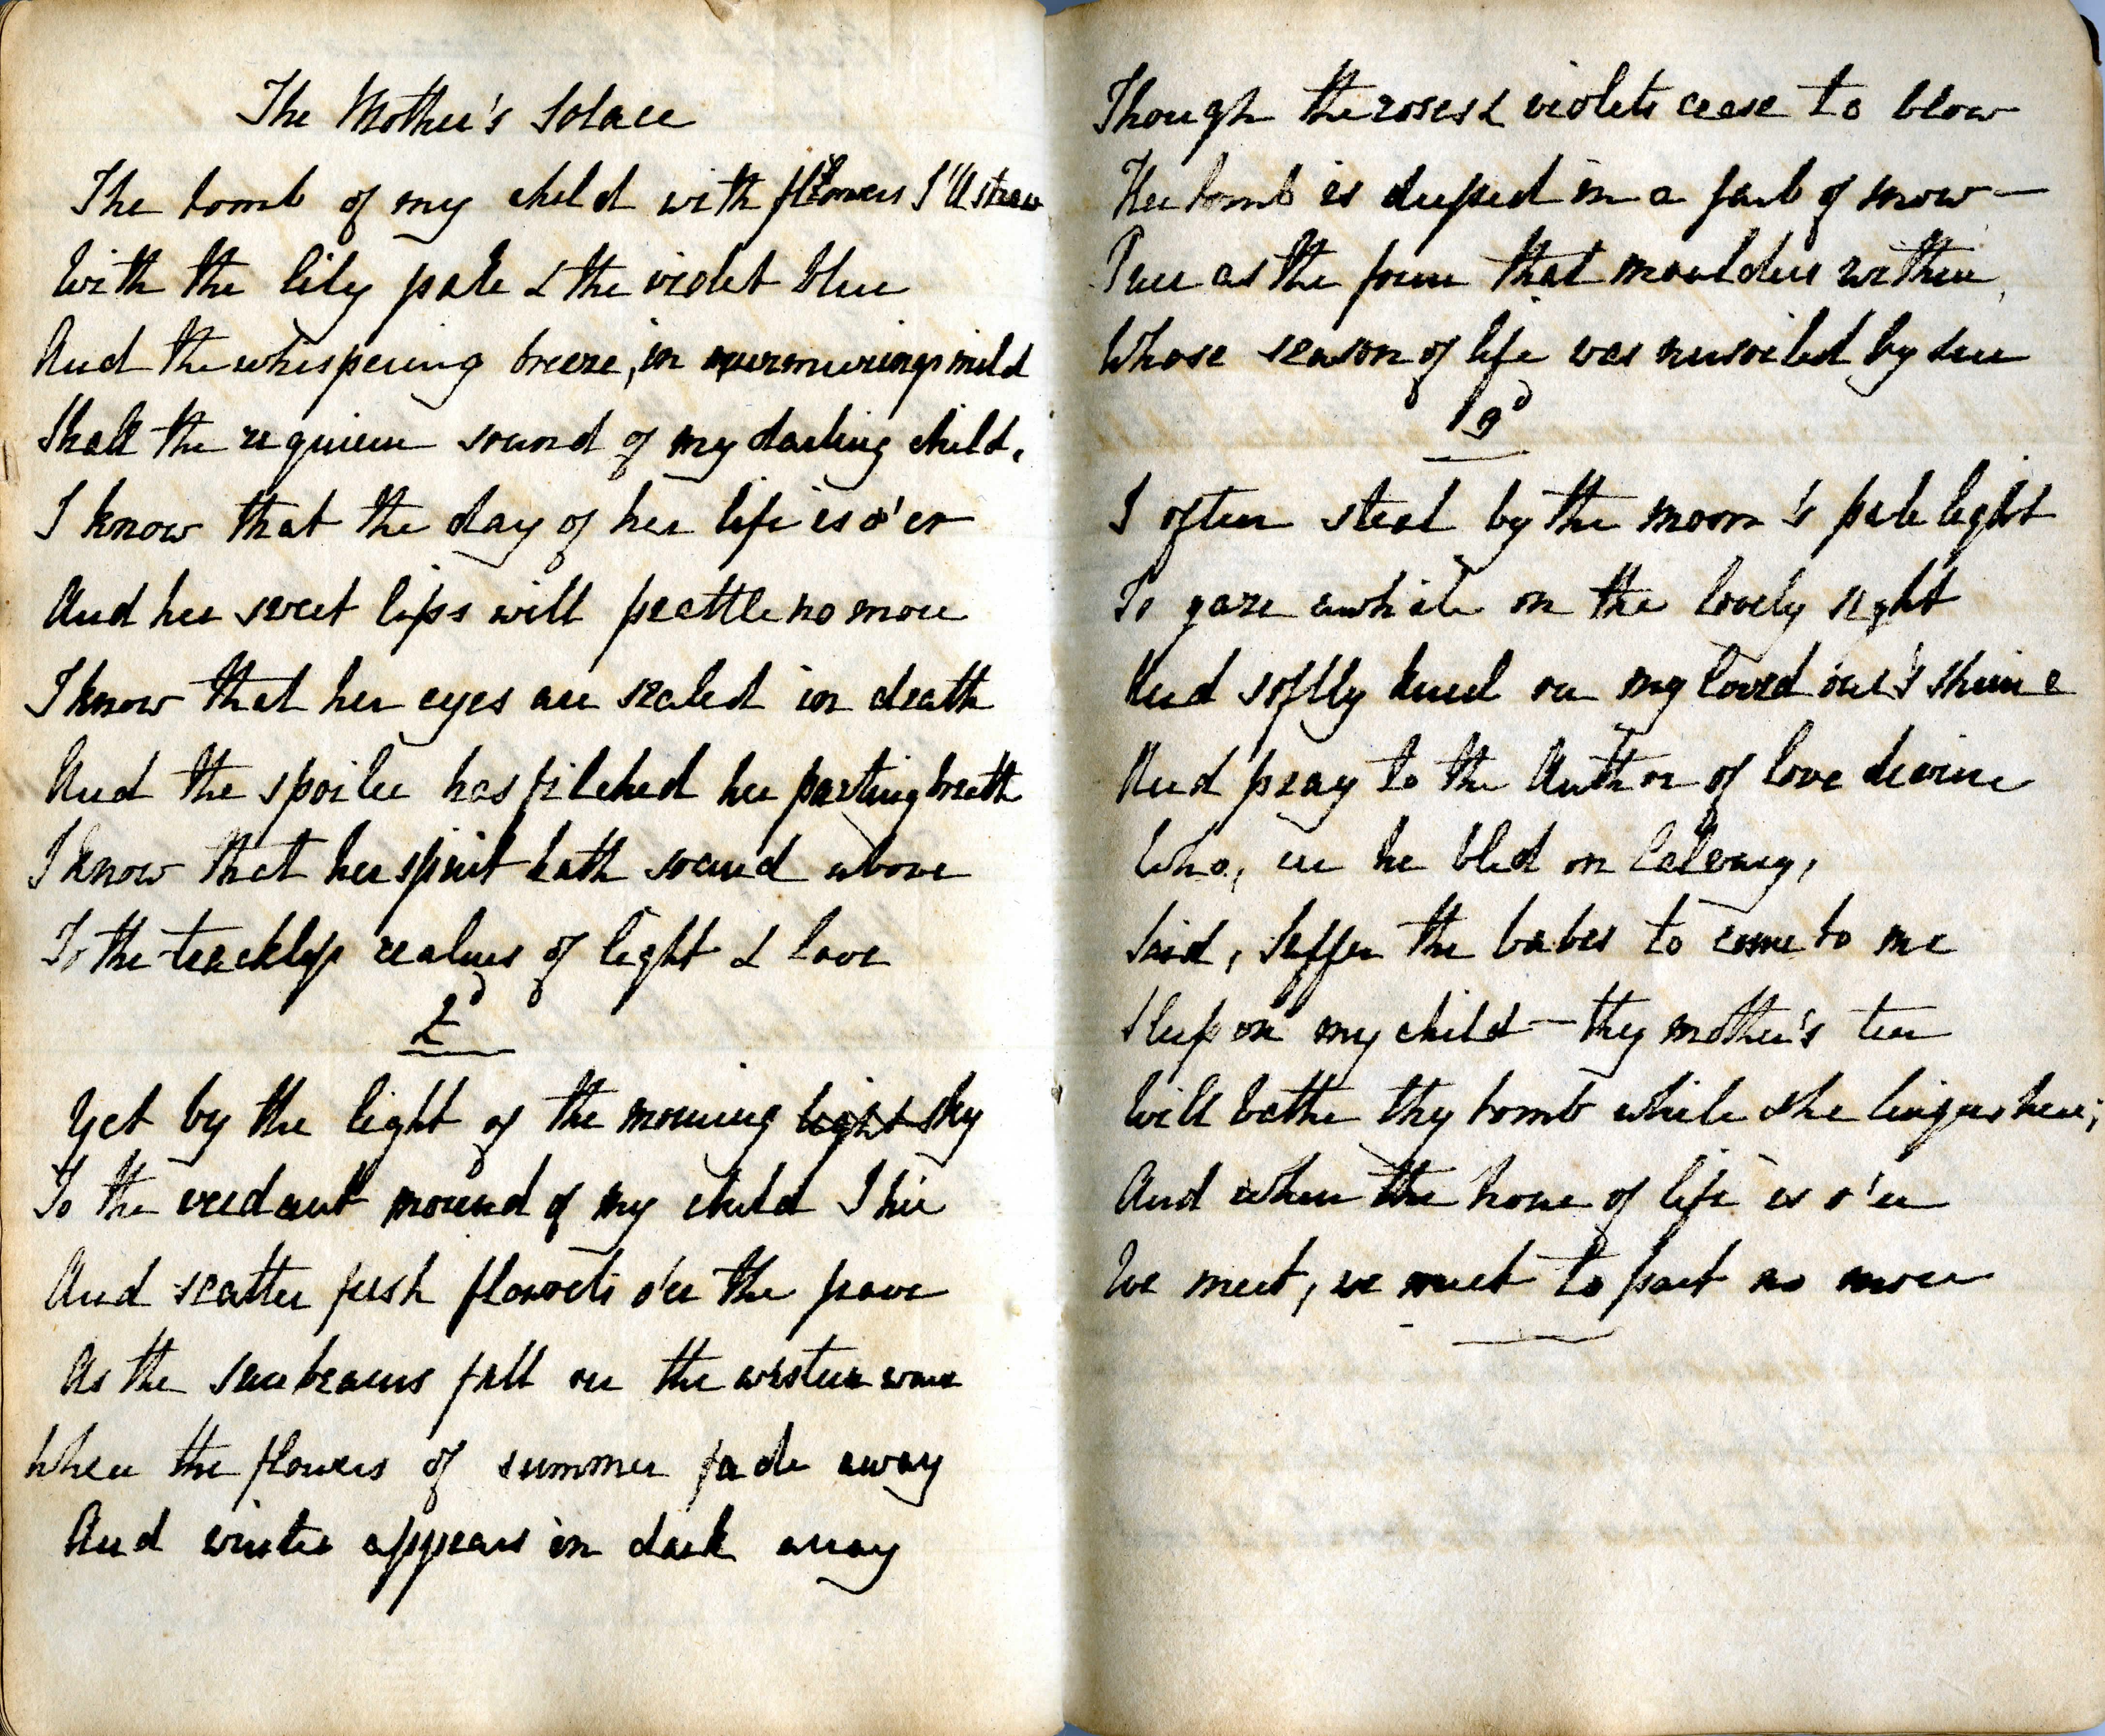 The Mother's Solace
The tomb of my child with flowers I'll strew
With the lily pale & the violet blue
And the whispering breeze, in murmurings mild
Shall the requiem sound of my darling child.
I know that the day of her life is o'er
And her sweet lips will prattle no more
I know that her eyes are sealed in death
And the spoiler has filched her parting breath
I know that her spirit hath soared above
To the trackless realms of light & love
2d
Yet by the light of the morning light sky
To the verdant mound of my child I hie
And scatter fresh flowrets o'er the grave
As the sunbeams fall on the western wave
When the flowers of summer fade away
And winter appears in dark array
Though the roses & violets cease to blow
Her tomb is dressed in a garb of snow —
Pure as the form that moulders within
Whose season of life was unsoiled by sin
3d
I often steal by the moon's pale light
To gaze awhile on the lovely sight
And softly kneel on my loved one's shrine
And pray to the Author of love divine
Who, ere he bled on Calvary,
Said, Suffer the babes to come to me
Sleep on my child — thy mother's tear
Will bathe thy tomb while she lingers here;
And when the hour of life is o'er
We meet, we meet to part no more